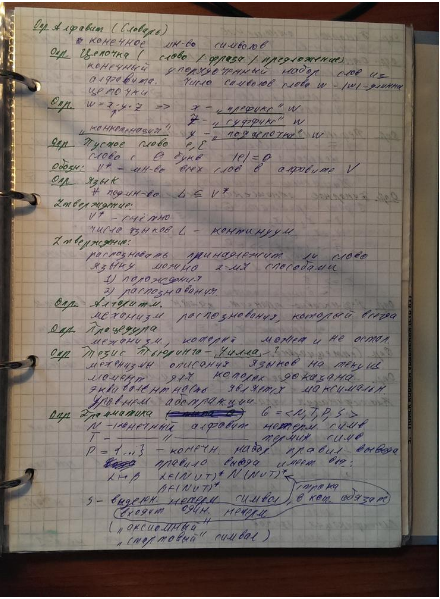 Опр Алфавит (Словарь)
конечное мн-во символов
Опр. Цепочка (слово / фраза / предложение)
конечный упорядоченный набор слов из
алфавита. Число символов слова w - |w| - длина
цепочки
Опр. w = xyz => x - "префикс" w
z - "суффикс" w
"конкатенация" y - "подцепочка" w
Опр Пустое слово e, ε
слово с 0 букв |e| = 0
Обозн: V* - мн-во всех слов в алфавите V
Опр. Язык
∀ подмн-во L ⊆ V*
Утверждение:
V* - счётно
число языков L - континуум
Утверждение:
распознавать принадлежит ли слово
языку можно 2-мя способами
1) порождения
2) распознавания
Опр. Алгоритм.
механизм распознования, который всегда
Опр. Процедура
механизм, который может и не остан
Опр. Тезис
механизм описания языков на
момент для которых доказана
эквивалентность является максималь
уровнем абстракции
Опр Грамматика G = <N, T, P, S>
N - конечный алфавит нетерм симв
T - — " — термин симв
P = {...} - конечн. набор правил вывода
правило вывода имеет вид:
S - выделен. нетерм символ, в кон. обязат
входит один.
"аксиомный"
"стартовый" символ)